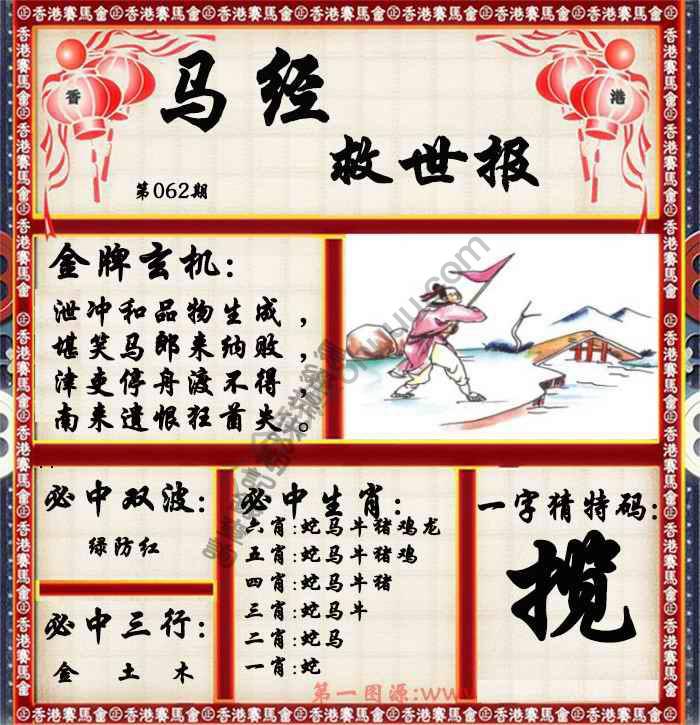 香港賽馬會
香
港
马经
救世报
第062期
金牌玄机:
泄冲和品物生成，
堪笑马郎来纳败，
津吏停舟渡不得，
南来遗恨狂首失。
必中双波:
绿防红
必中三行:
金 土 木
必中生肖:
六肖:蛇马牛猪鸡龙
五肖:蛇马牛猪鸡
四肖:蛇马牛猪
三肖:蛇马牛
二肖:蛇马
一肖:蛇
一字猜特码:
揽
第一图源:www